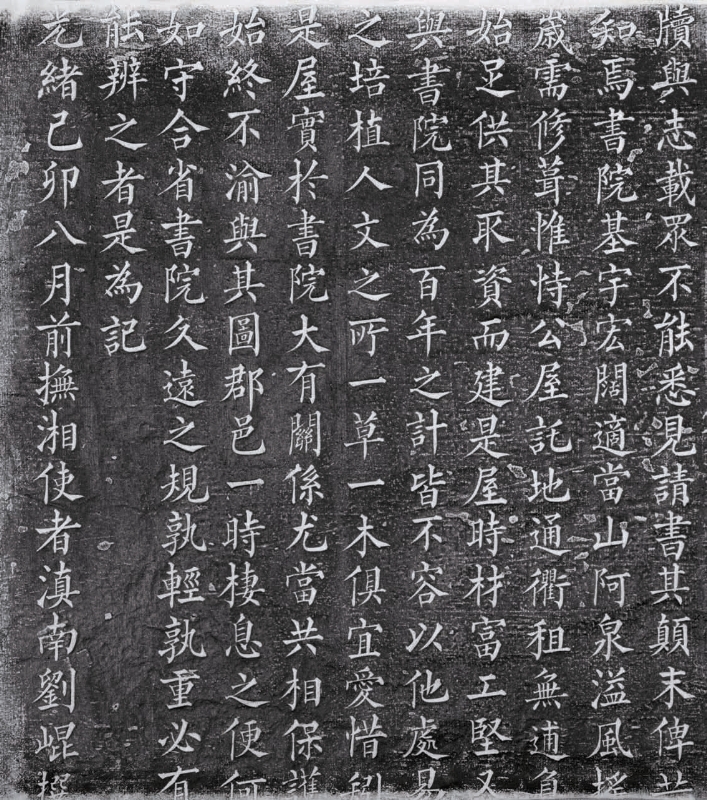 牘與志載眾不能悉見請書其顛末俾共
知焉書院基宇宏闊適當山阿泉溢風搖
歲需修葺惟恃公屋託地通衢租無逋負
始足供其取資而建是屋時材富工堅又
與書院同為百年之計皆不容以他處易
之培植人文之所一草一木俱宜愛惜矧
是屋實於書院大有關係尤當共相保護
始終不渝與其圖郡邑一時棲息之便何
如守合省書院久遠之規孰輕孰重必有
能辨之者是為記
光緒己卯八月前撫湘使者滇南劉崐撰